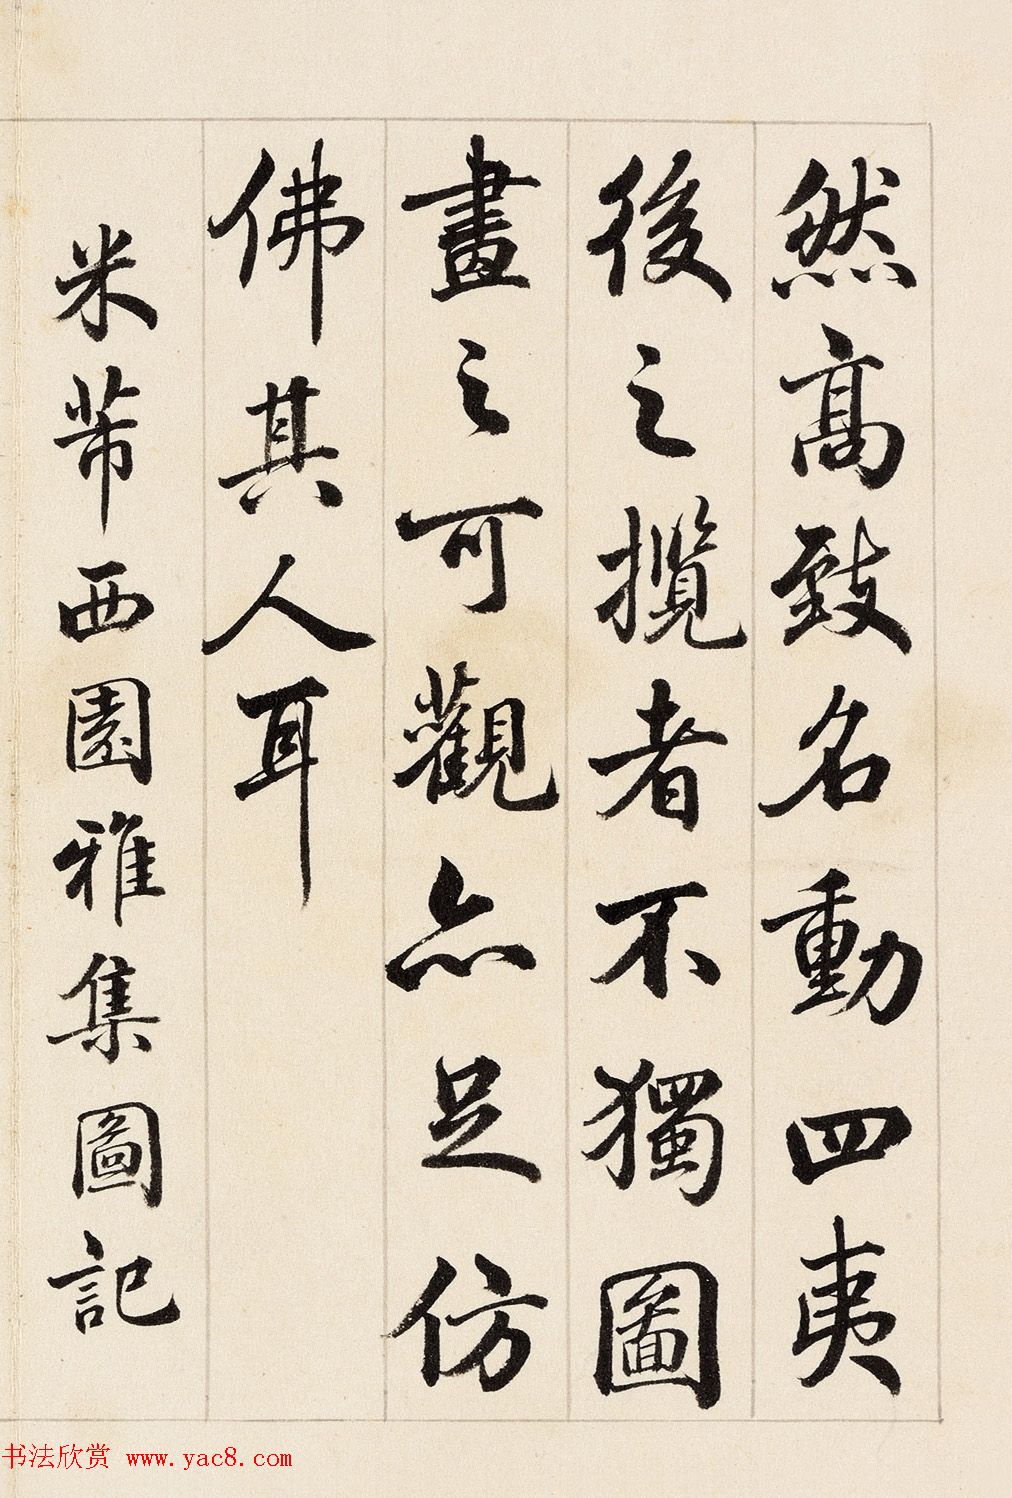 然高致名動四夷
後之攬者不獨圖
畫之可觀亦足仿
佛其人耳
米芾西園雅集圖記
书法欣赏 www.yac8.com